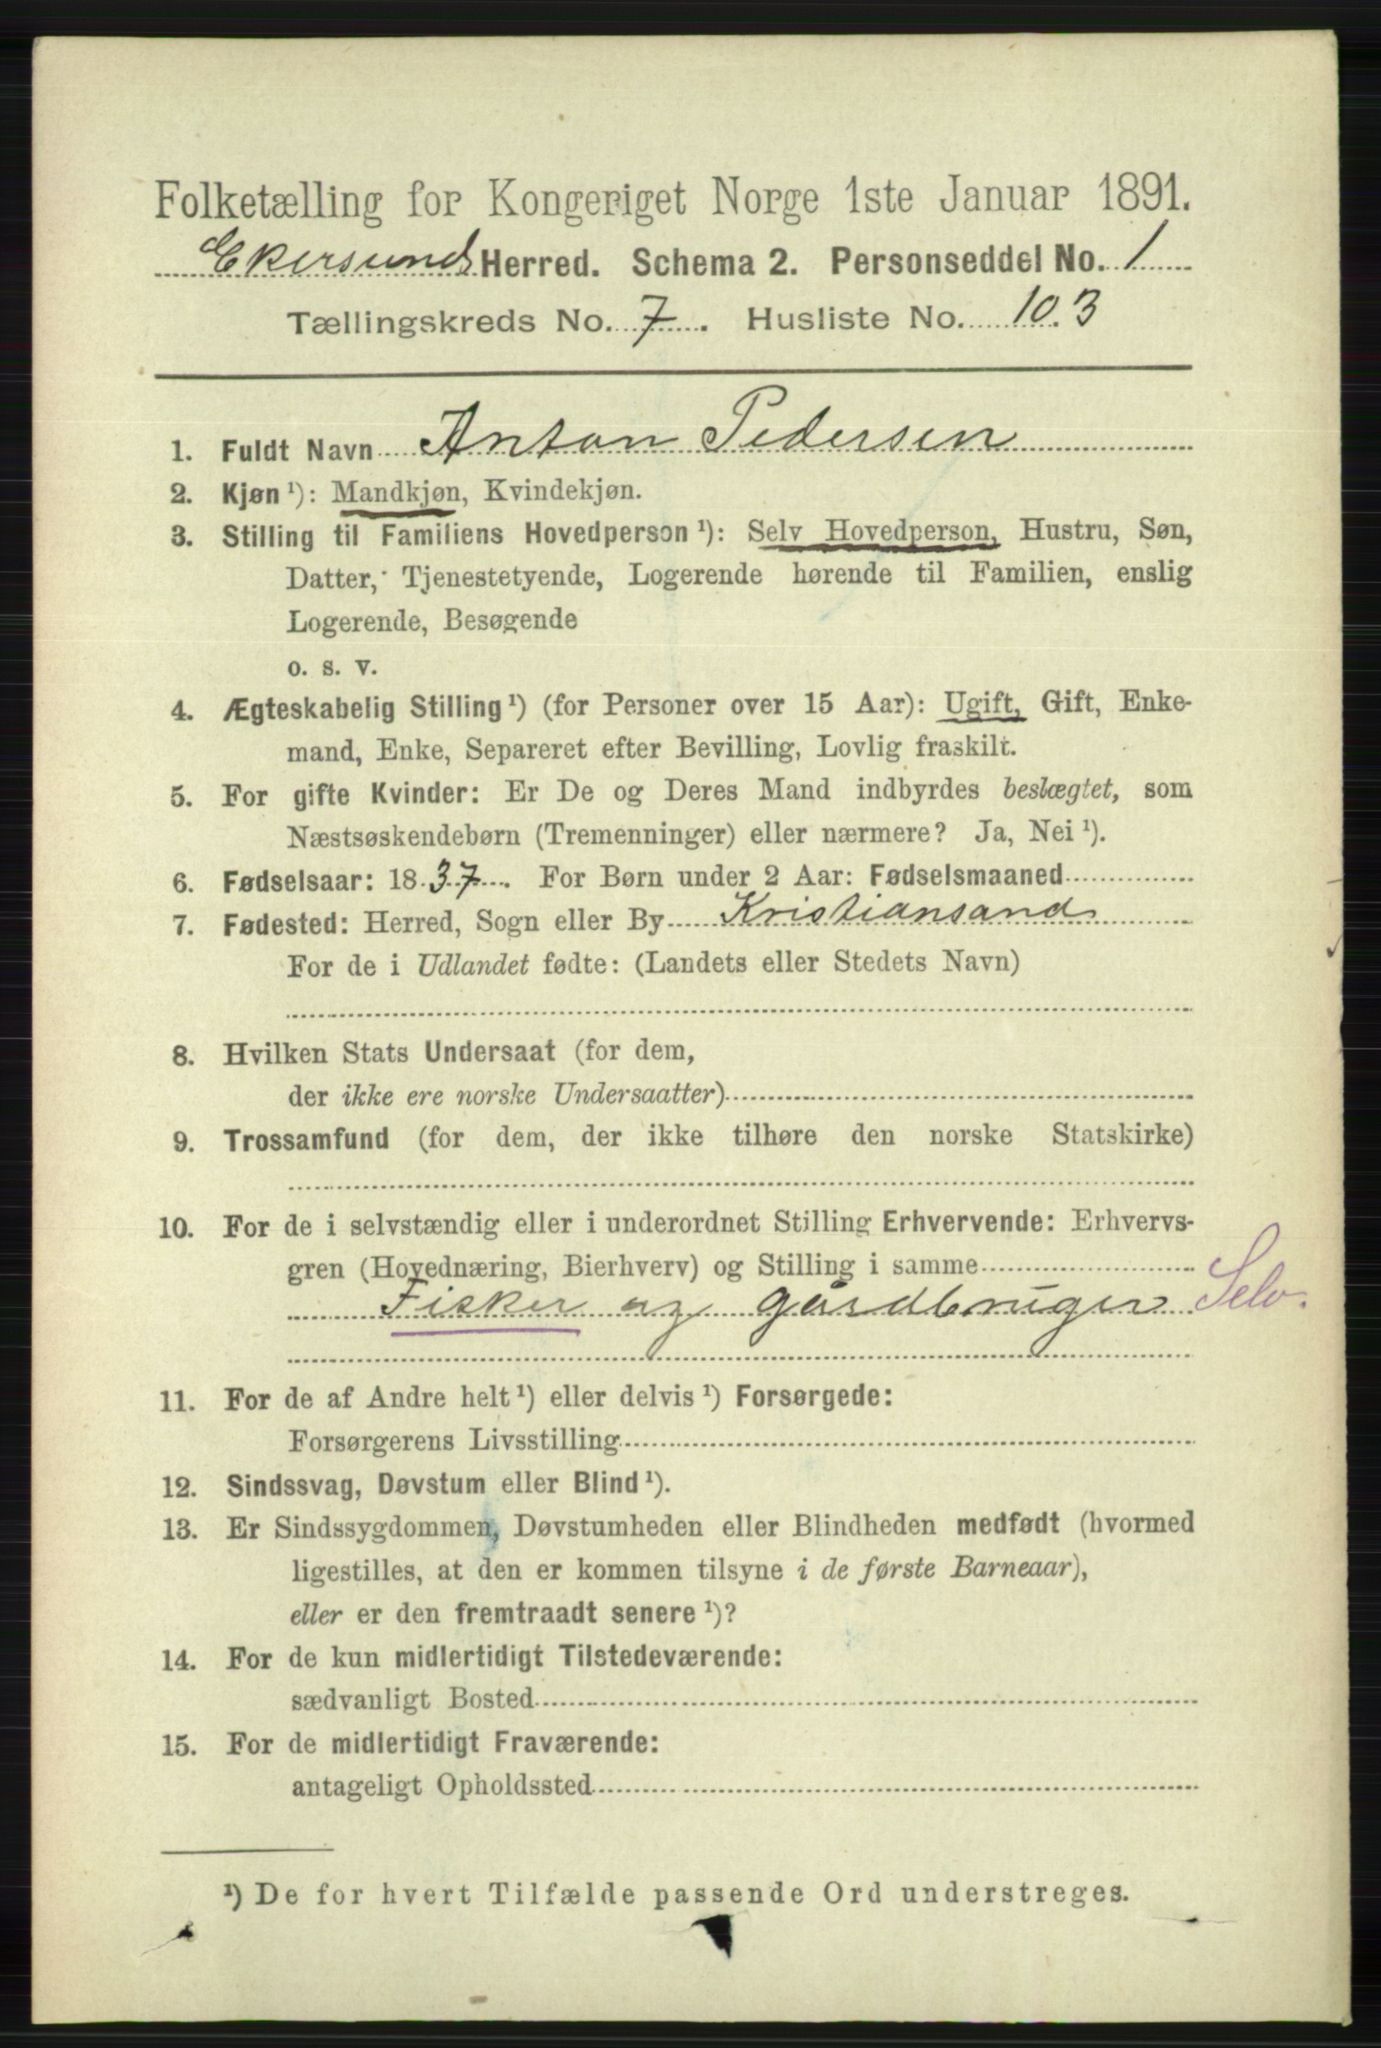 Folketælling for Kongeriget Norge 1ste Januar 1891.
Ekersunds Herred. Schema 2. Personseddel No. 1
Tællingskreds No. 7. Husliste No. 103
1. Fuldt Navn Anton Pedersen
2. Kjøn ¹): Mandkjøn, Kvindekjøn.
3. Stilling til Familiens Hovedperson ¹): Selv Hovedperson, Hustru, Søn,
Datter, Tjenestetyende, Logerende hørende til Familien, enslig
Logerende, Besøgende
o. s. v.
4. Ægteskabelig Stilling ¹) (for Personer over 15 Aar): Ugift, Gift, Enke-
mand, Enke, Separeret efter Bevilling, Lovlig fraskilt.
5. For gifte Kvinder: Er De og Deres Mand indbyrdes beslægtet, som
Næstsøskendebørn (Tremenninger) eller nærmere? Ja, Nei ¹).
6. Fødselsaar: 1837. For Børn under 2 Aar: Fødselsmaaned
7. Fødested: Herred, Sogn eller By Kristiansand
For de i Udlandet fødte: (Landets eller Stedets Navn)
8. Hvilken Stats Undersaat (for dem,
der ikke ere norske Undersaatter)
9. Trossamfund (for dem, der ikke tilhøre den norske Statskirke)
10. For de i selvstændig eller i underordnet Stilling Erhvervende: Erhvervs-
gren (Hovednæring, Bierhverv) og Stilling i samme
Fisker og gårdbruger Selv.
11. For de af Andre helt ¹) eller delvis ¹) Forsørgede:
Forsørgerens Livsstilling
12. Sindssvag, Døvstum eller Blind ¹).
13. Er Sindssygdommen, Døvstumheden eller Blindheden medfødt (hvormed
ligestilles, at den er kommen tilsyne i de første Barneaar),
eller er den fremtraadt senere ¹)?
14. For de kun midlertidigt Tilstedeværende:
sædvanligt Bosted
15. For de midlertidigt Fraværende:
antageligt Opholdssted
¹) De for hvert Tilfælde passende Ord understreges.